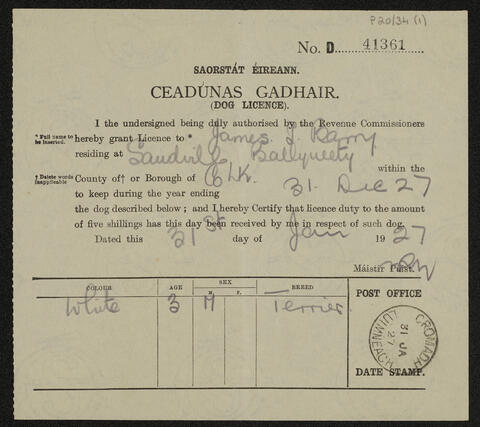 P20/34 (1)
No. D 41361
SAORSTÁT ÉIREANN.
CEADÚNAS GADHAIR.
(DOG LICENCE).
I the undersigned being duly authorised by the Revenue Commissioners
* Full name to be inserted. hereby grant Licence to * James J. Barry
residing at Sandville Ballyneety within the
† Delete words inapplicable County of† or Borough of Co LK. 31 Dec 27
to keep during the year ending
the dog described below; and I hereby Certify that licence duty to the amount
of five shillings has this day been received by me in respect of such dog.
Dated this 31st day of Jan 1927
Máistir Puist.
COLOUR AGE SEX M. F. BREED POST OFFICE
White 3 M Terrier
CROMADH
31 JA
27
LUIMNEACH
DATE STAMP.